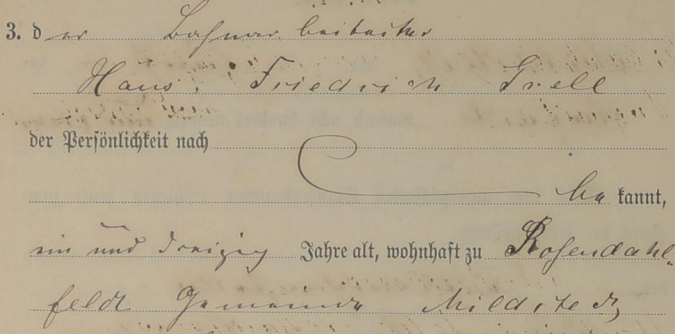 3. der Bahnarbeiter
Hans Friedrich Trell
der Persönlichkeit nach
be kannt,
ein und dreizig Jahre alt, wohnhaft zu Rosendahl-
feld Gemeinde Mildstedt,